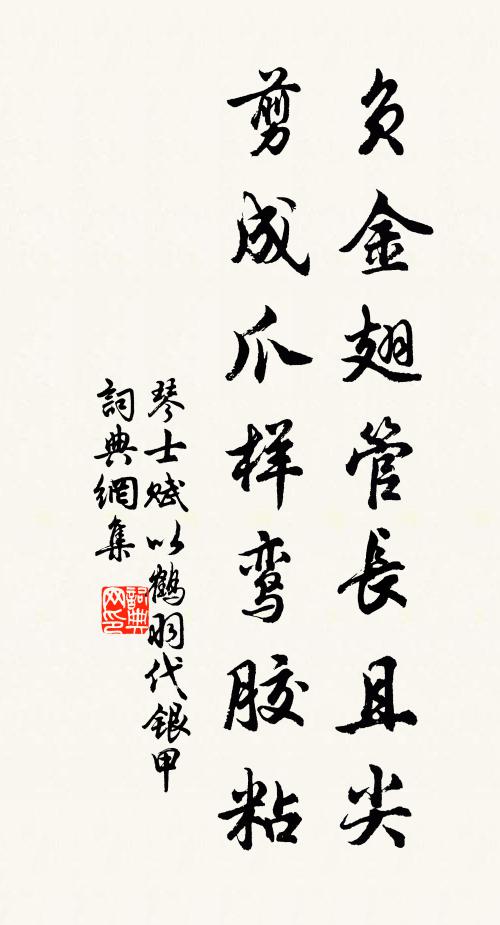 负金翅管長且尖
剪成爪样鸾胶粘
琴士赋以鹤羽代银甲
詞典網集
詞典
网印